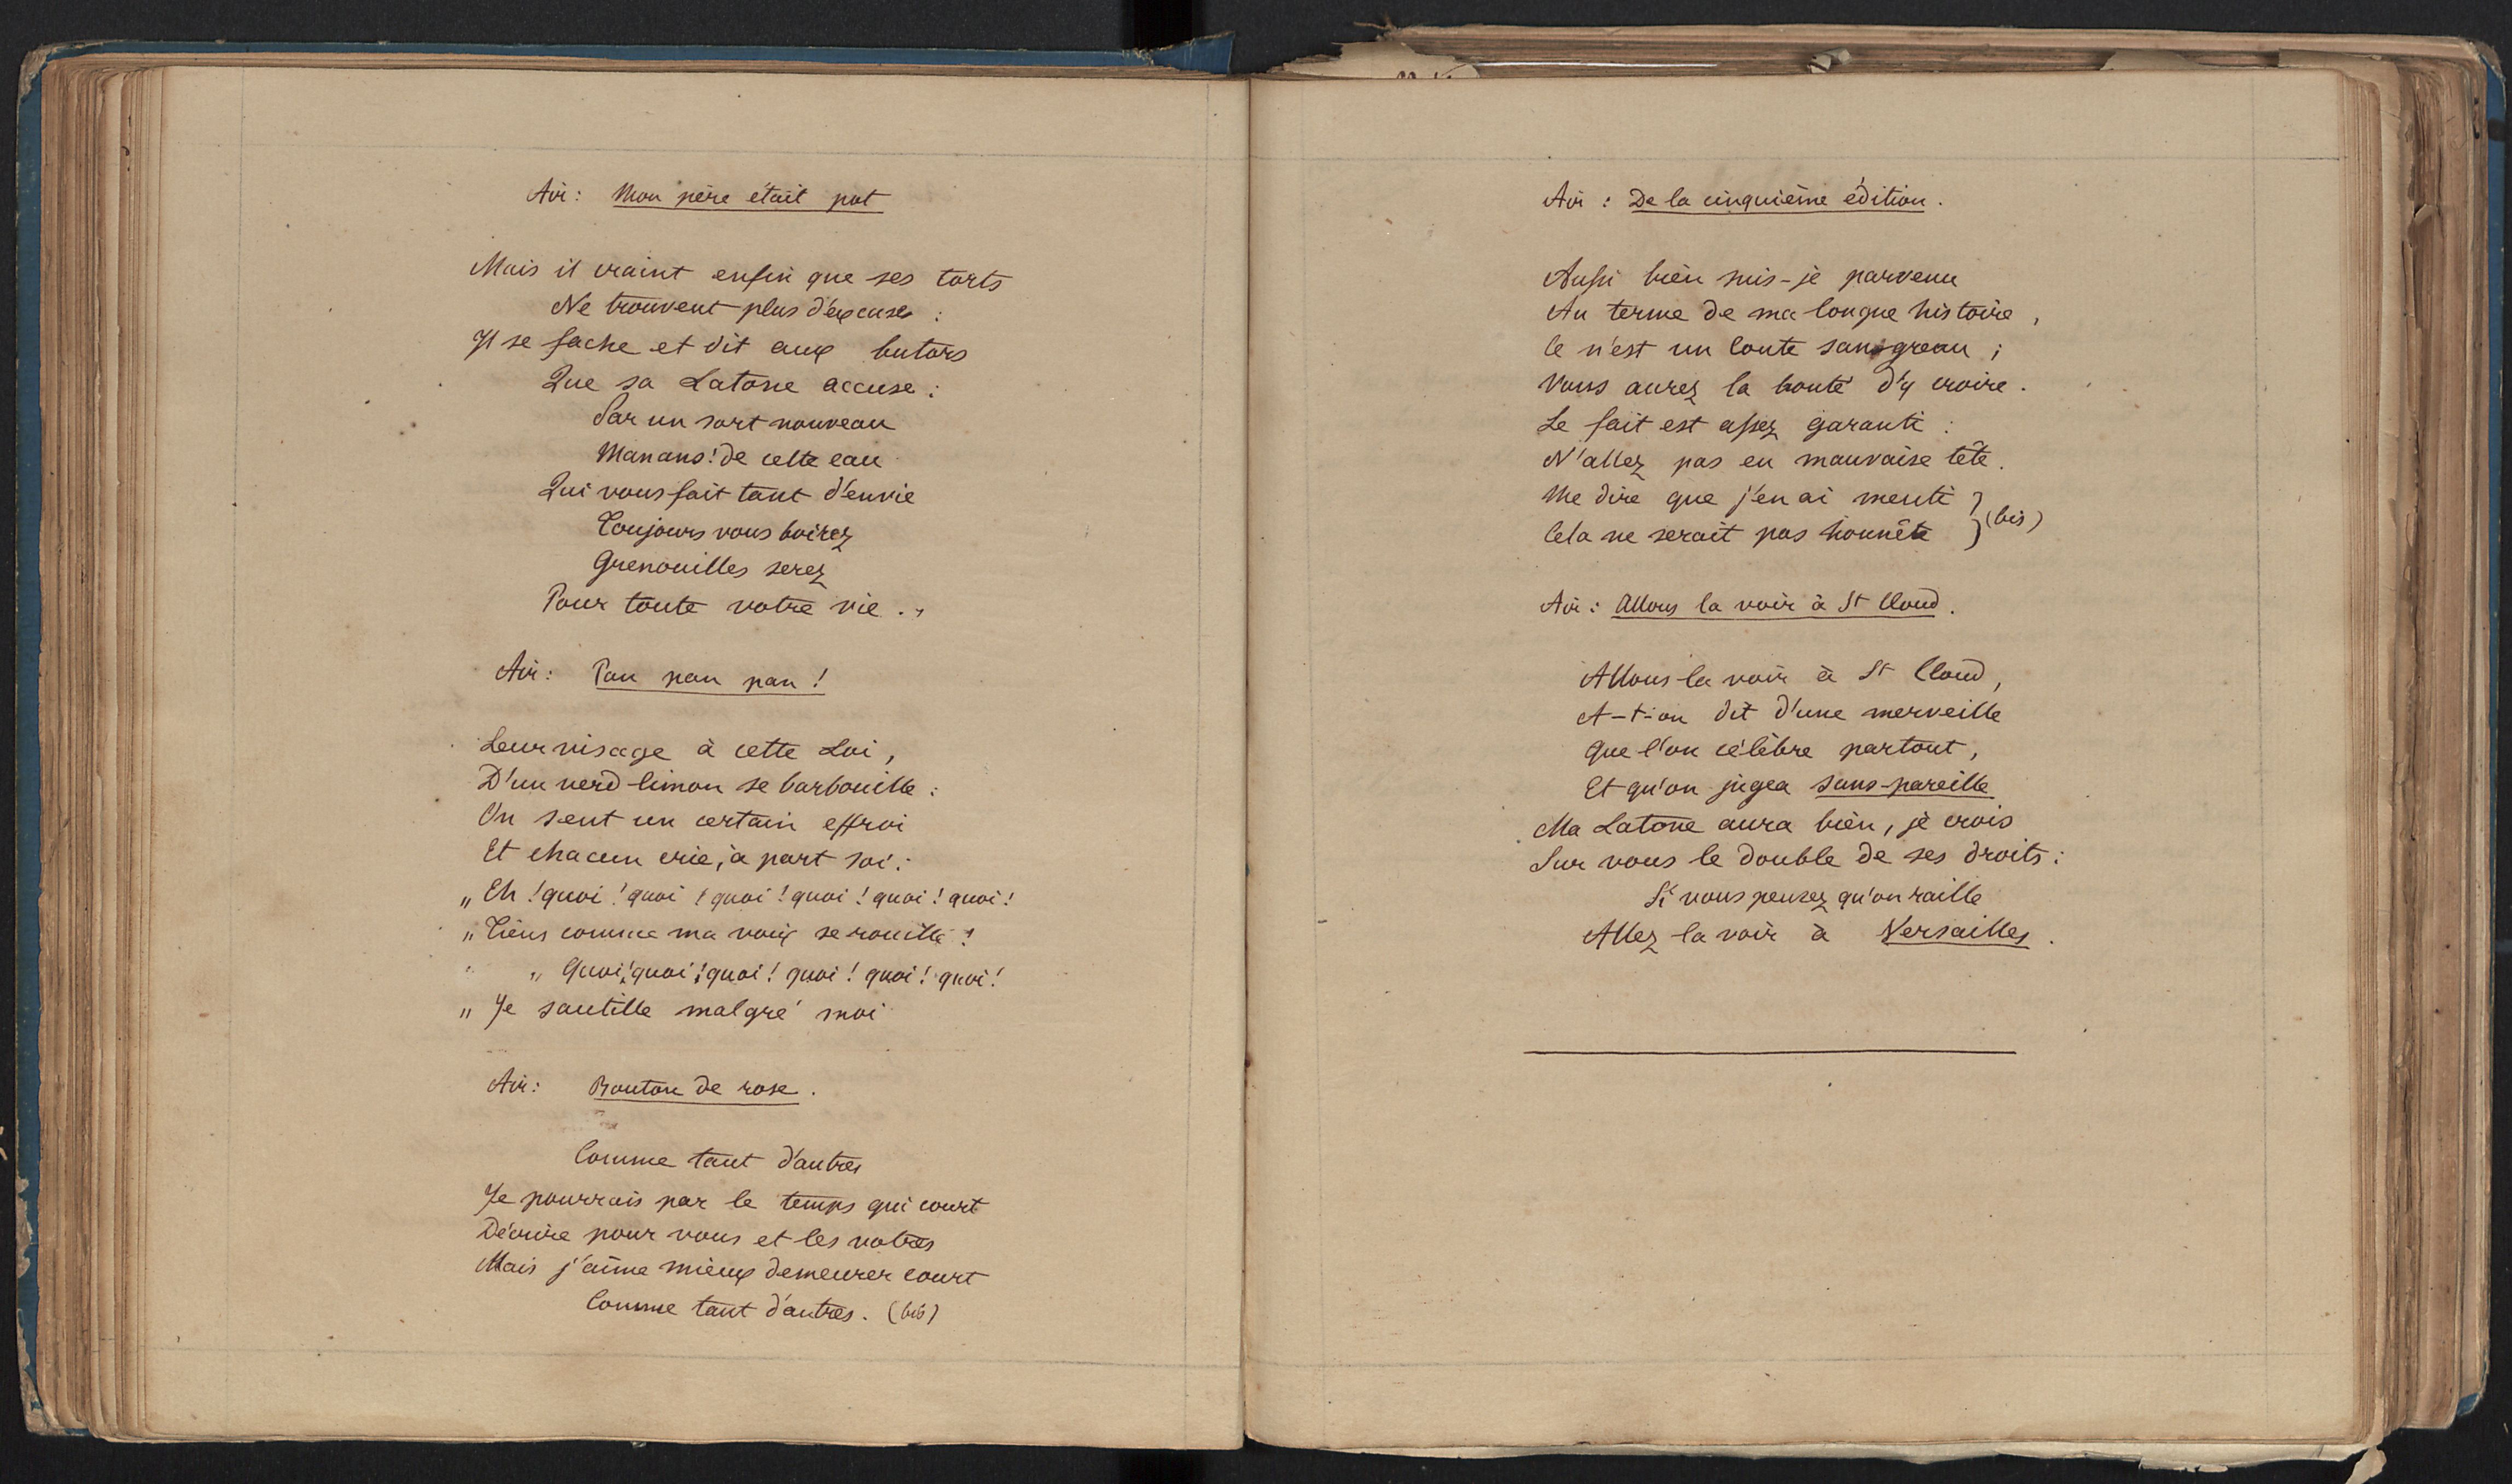 Air : Mon père était pot
Mais il craint enfin que ses torts
Ne trouvent plus d'excuses :
Il se fache et dit aux butors
Que sa Latone accuse :
Par un sort nouveau
Manans ! de cette eau
Qui vous fait tant d'envie
Toujours vous boirez
Grenouilles serez
Pour toute votre vie . „
Air : Pan pan pan !
Leur visage à cette Loi,
D'un verd limon se barbouille :
On sent un certain effroi
Et chacun crie, à part soi :
„ Eh ! quoi ! quoi ! quoi ! quoi ! quoi ! quoi !
„ Tiens comme ma voix se rouille !
„ Quoi ! quoi ! quoi ! quoi ! quoi ! quoi !
„ Je sautille malgré moi
Air : Bouton de rose .
Comme tant d'autres
Je pourrais par le temps qui court
Décrire pour vous et les votres
Mais j'aime mieux demeurer court
Comme tant d'autres . (bis)
Air : De la cinquième édition .
Aussi bien suis-je parvenu
Au terme de ma longue histoire ,
Ce n'est un Conte saugreau ;
Vous aurez la bonté d'y croire .
Le fait est assez garanti :
N'allez pas en mauvaise tête .
Me dire que j'en ai menti
Cela ne serait pas honnête } (bis)
Air : Allons la voir à St Cloud .
Allons-la voir à St Cloud ,
A-t-on dit d'une merveille
Que l'on célèbre partout ,
Et qu'on jugea sans-pareille
Ma Latone aura bien, je crois
Sur vous le double de ses droits :
Si vous pensez qu'on raille
Allez-la voir à Versailles .